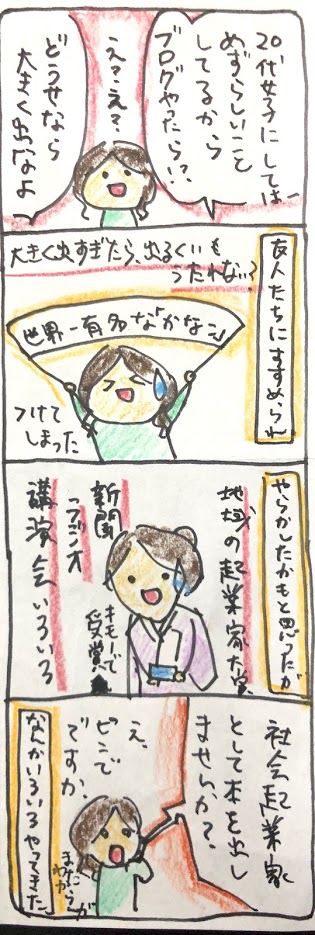 20代女子にしては
めずらしいこと
してるから
ブログやったら!?
え?え?
どうせなら
大きく出なよ
友人たちにすすめられ
大きく出すぎたら、出るくいも
うたれない?
世界一有名な「かなこ」
つけて
しまった
やらかしたかもと思ったが
地域の起業家大賞
キモノで
受賞
新聞
ラジオ
講演会いろいろ
社会起業家
として本を出し
ませんか?
え、
ピンで
ですか
なんかいろいろやってきた